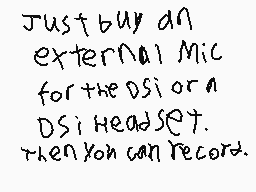 Just buy an
external Mic
for the DSi or a
DSi Headset.
Then you can record.